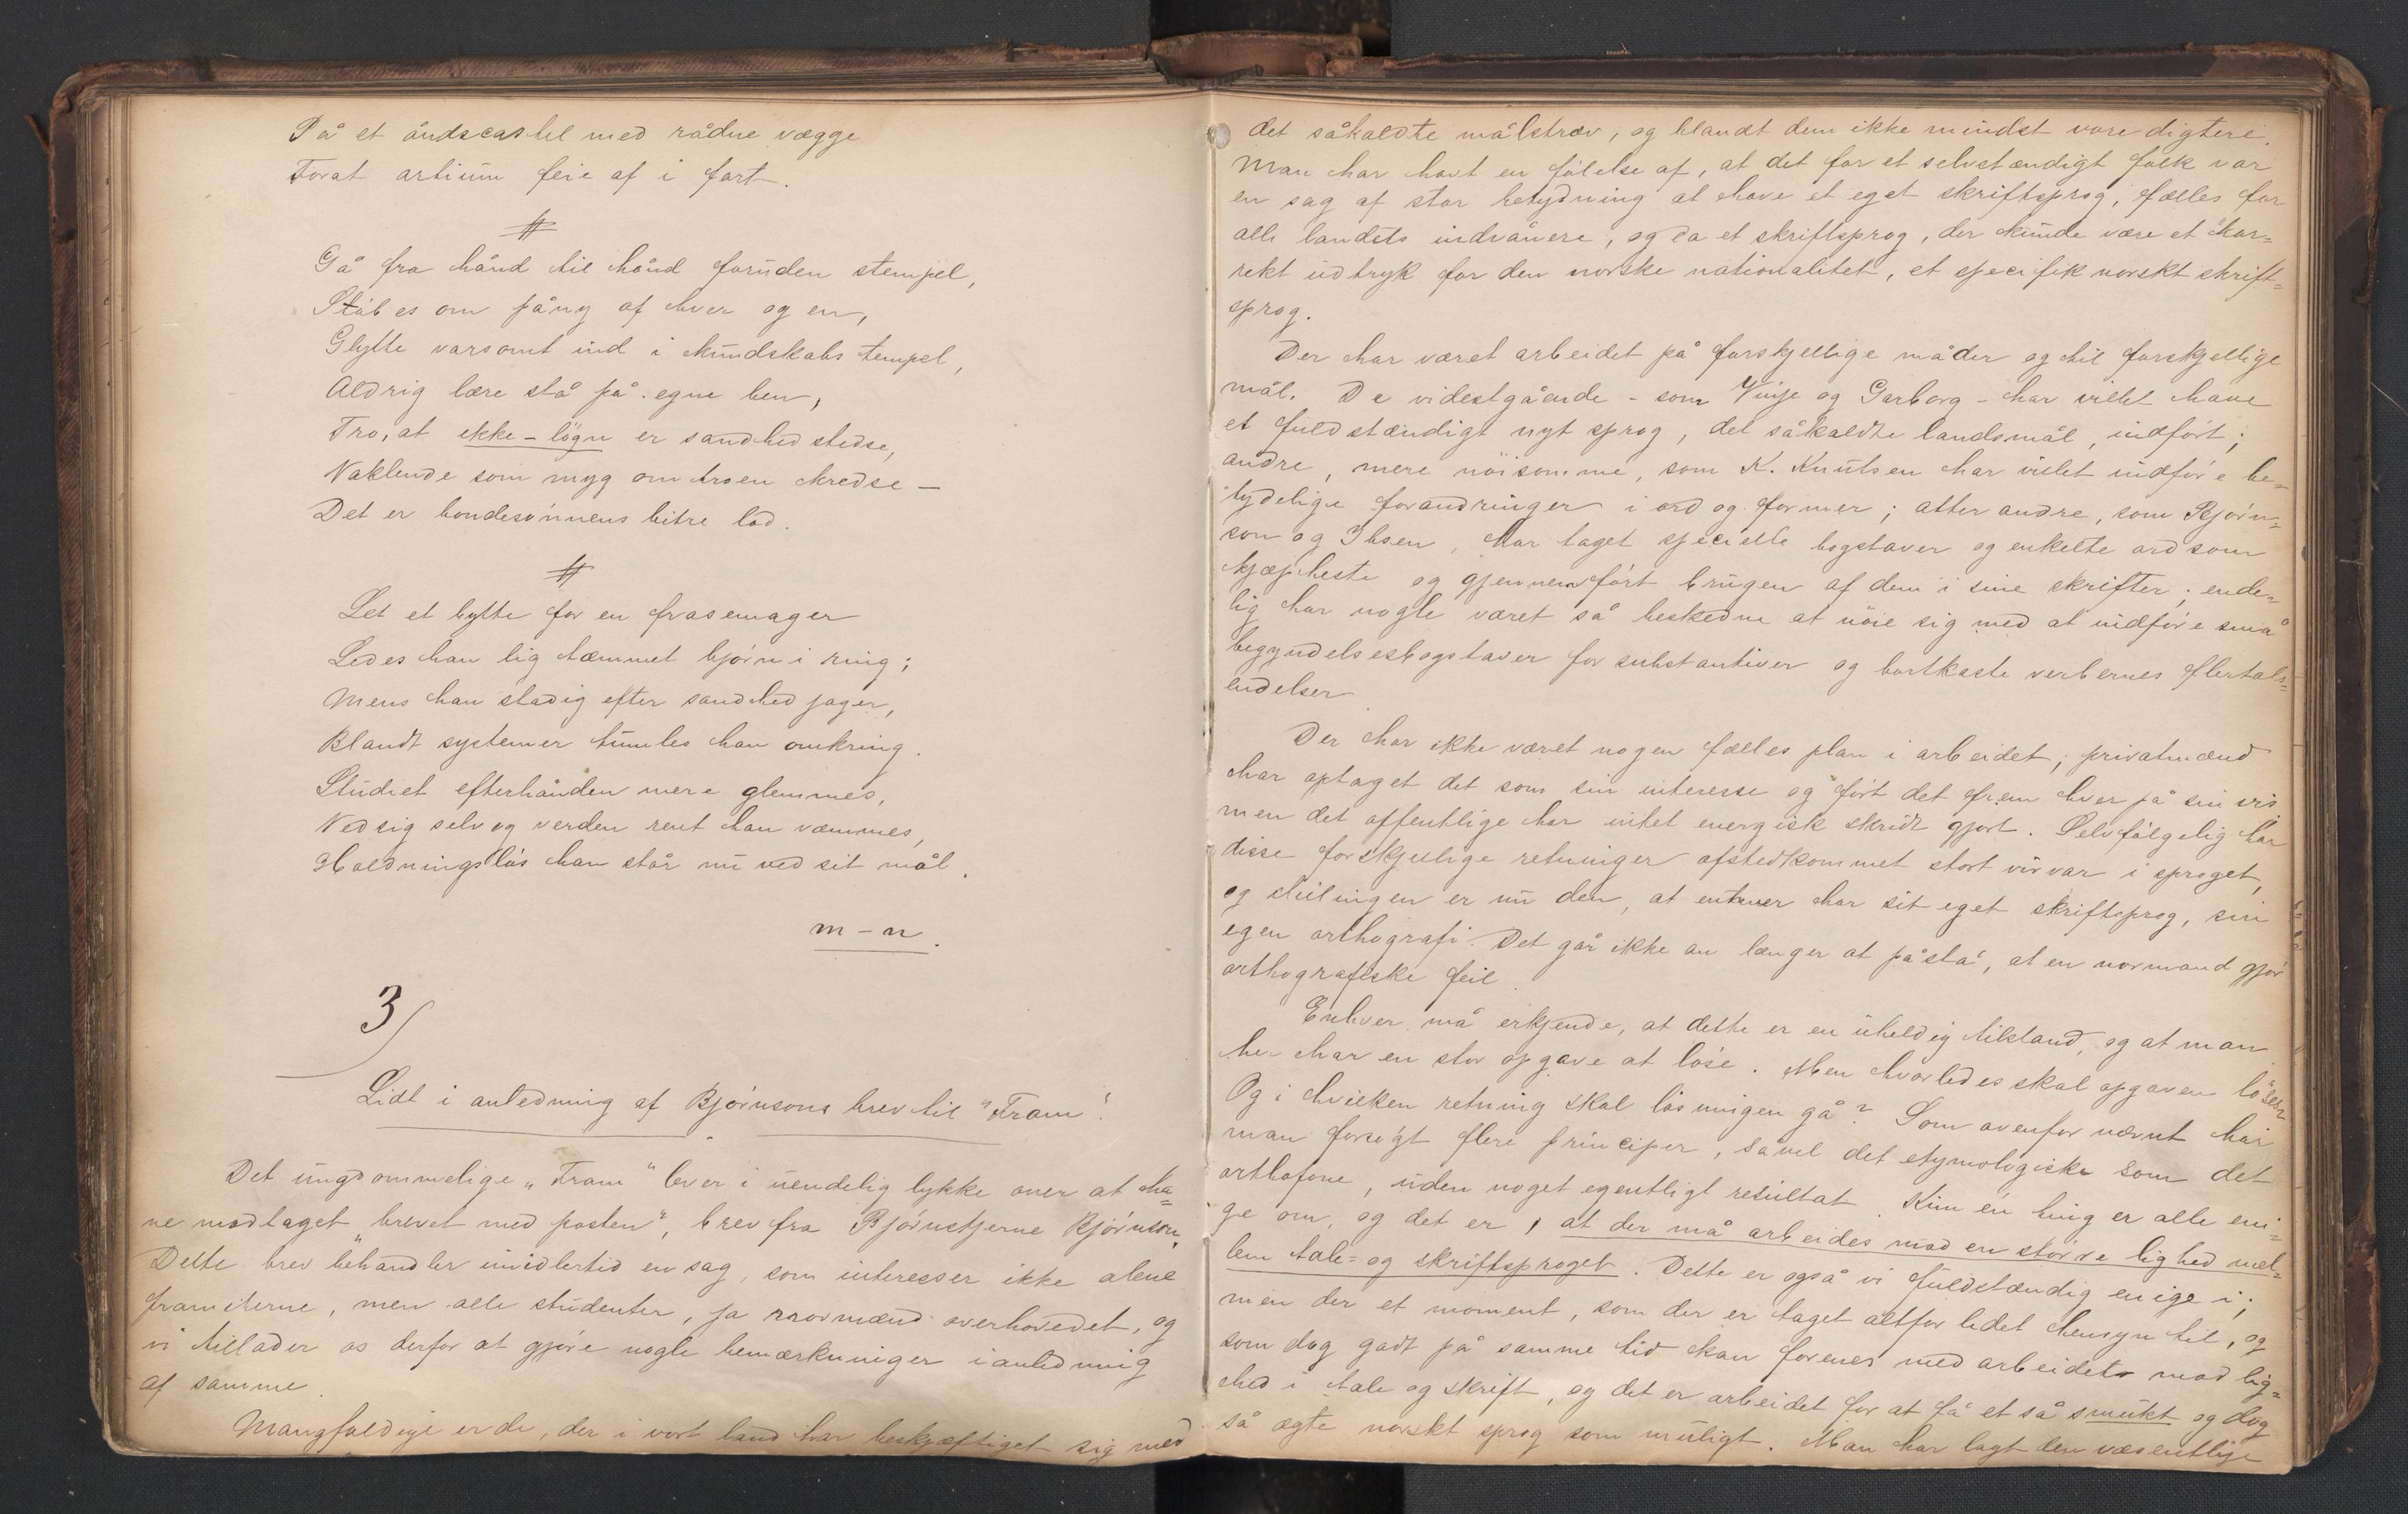 På et åndscastel med rådne vægge
Forat artium feie af i fart.
#
Gå fra hånd til hånd foruden stempel,
Stöbes om påny af hver og en,
Glytte varsomt ind i kundskabs tempel,
Aldrig lære stå på egne ben,
Tro, at ikke-lögn er sandhed stedse,
Vaklende som myg om troen kredse –
Det er bondesönnens bitre lod.
#
Let et bytte for en frasemager
Ledes han lig tæmmet björn i ring;
Mens han stadig efter sandhed jager,
Blandt systemer tumles han omkring.
Studiet efterhånden mere glemmes,
Ved sig selv og verden rent han væmmes,
Holdningslös han står nu ved sit mål.
m – n.
3/
Lidt i anledning af Björnsons brev til "Fram".
Det ungdommelige "Fram" lever i uendelig lykke over at ha=
ve modtaget "brevet med posten", brev fra Björnstjerne Björnson.
Dette brev behandler imidlertid en sag, som interesser ikke alene
framiterne, men alle studenter, ja normænd overhovedet, og
vi tillader os derfor at gjöre nogle bemærkninger i anledning
af samme.
Mangfoldige er de, der i vort land har beskjæftiget sig med
det såkaldte målstræv, og blandt dem ikke mindst vore digtere.
Man har havt en fölelse af, at det for et selvstændigt folk var
en sag af stor betydning at have et eget skriftsprog, fælles for
alle landets indvånere, og da et skriftsprog, der kunde være et kor=
rekt udtryk for den norske nationalitet, et specifik norskt skrift=
sprog.
Der har været arbeidet på forskjellige måder og til forskjellige
mål. De videstgående – som Vinje og Garborg – har villet have
et fuldstændigt nyt sprog, det såkaldte landsmål, indfört;
andre, mere nöisomme, som K. Knutsen har villet indföre be=
tydelige forandringer i ord og former; atter andre, som Björn=
son og Ibsen, har taget specielle bogstaver og enkelte ord som
kjæpheste og gjennemfört brugen af dem i sine skrifter; ende=
lig har nogle været så beskedne at nöie sig med at indföre små
begyndelsesbogstaver for substantiver og bortkaste verbernes flertals=
endelser.
Der har ikke været nogen fælles plan i arbeidet; privatmænd
har optaget det som sin interesse og fört det frem hver på sin vis
men det offentlige har intet energisk skridt gjort. Selvfölgelig har
disse forskjellige retninger afstedkommet stort virvar i sproget,
og stillingen er nu den, at enhver har sit eget skriftsprog, sin
egen orthografi. Det går ikke an længer at påstå, at en normand gjör
orthografiske feil.
Enhver må erkjende, at dette er en uheldig tilstand, og at man
her har en stor opgave at löse. Men hvorledes skal opgaven löses?
Og i hvilken retning skal lösningen gå? Som ovenfor nævnt har
man forsögt flere principer, såvel det etymologiske som det
orthofone, uden noget egentligt resultat. Kun én ting er alle eni=
ge om, og det er, at der må arbeides mod en större lighed mel=
lem tale= og skriftsproget. Dette er også vi fuldstændig enige i;
men der et moment, som der er taget altfor lidet hensyn til, og
som dog godt på samme tid kan forenes med arbeidet mod lig=
hed i tale og skrift, og det er arbeidet for at få et så smukt og dog
så ægte norskt sprog som muligt. Man har lagt den væsentlige